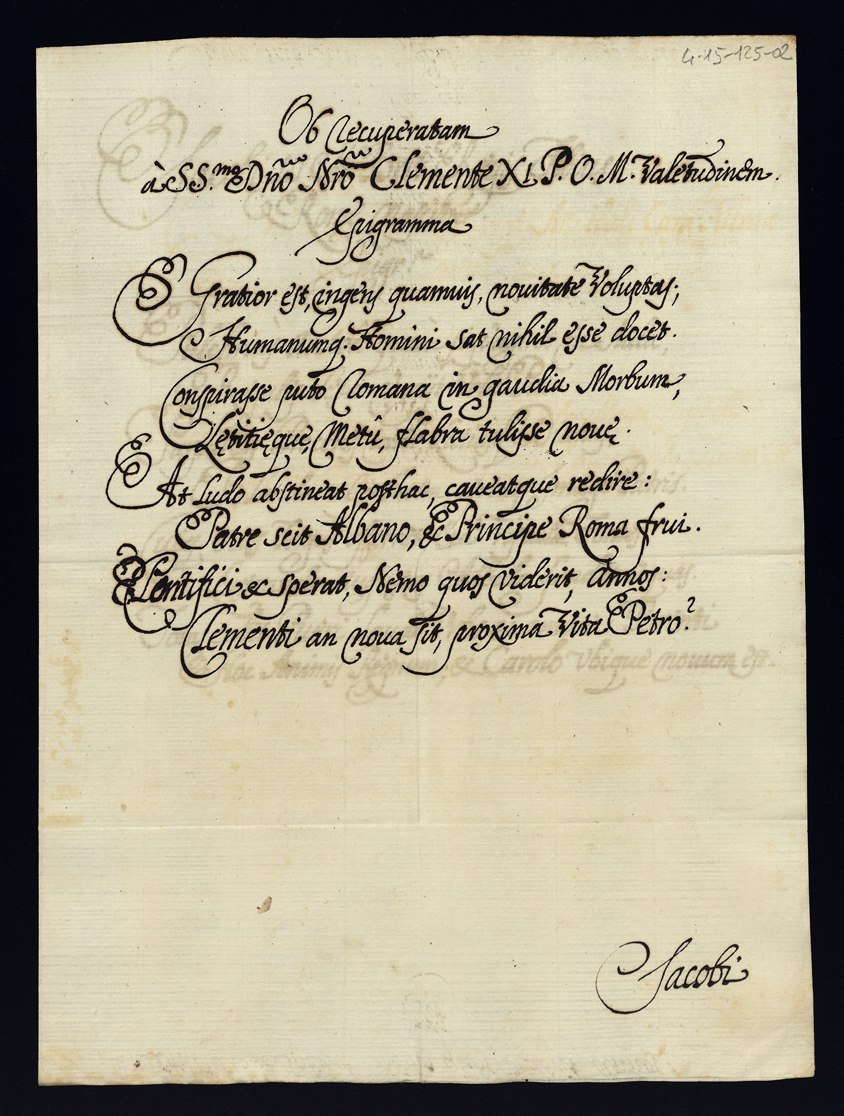 4-15-125-02
Ob recuperatam
à SS.mo Dño Nrõ Clemente XI. P. O. M. Valetudinem.
Epigramma
Gratior est, ingens quamuis, nouitate Voluptas;
Humanumq. Homini sat nihil esse docet.
Conspirasse puto Romana in gaudia Morbum,
Lętitięque, Metû, flabra tulisse nouę.
At ludo abstineat posthac, caueatque redire:
Patre scit Albano, & Principe Roma frui.
Pontifici & sperat, Nemo quos viderit, annos:
Clementi an noua sit, proxima Vita Petro?
Jacobi